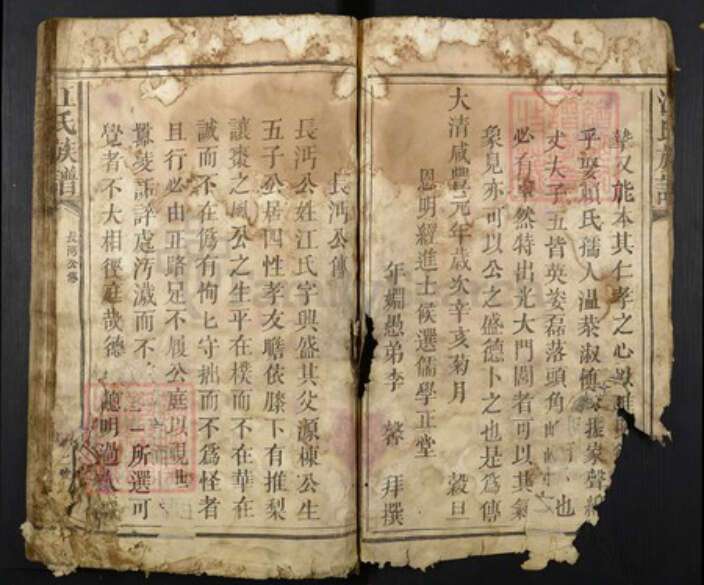 江氏族譜
又能本其仁孝之心
乎娶
氏孺人温恭淑慎
丈夫子五皆英姿磊落頭角
也
必有卓然特出光大門閭者可以其氣
象見亦可以公之盛德卜之也是爲傳
大清咸豐元年歲次辛亥菊月
榖旦
恩明經進士候選儒學正堂
年姻愚弟李
馨
拜撰
長沔公傳
長沔公姓江氏字興盛其父源棟公生
五子公居四性孝友瞻依膝下有推梨
讓棗之風公之生平在樸而不在華在
誠而不在僞有恂匕守拙而不爲怪者
且行必由正路足不履公庭以視世
訴評處汚濊而不
一所選可
覺者不大相徑庭哉德
聰明過人
江氏族譜
長沔公傳